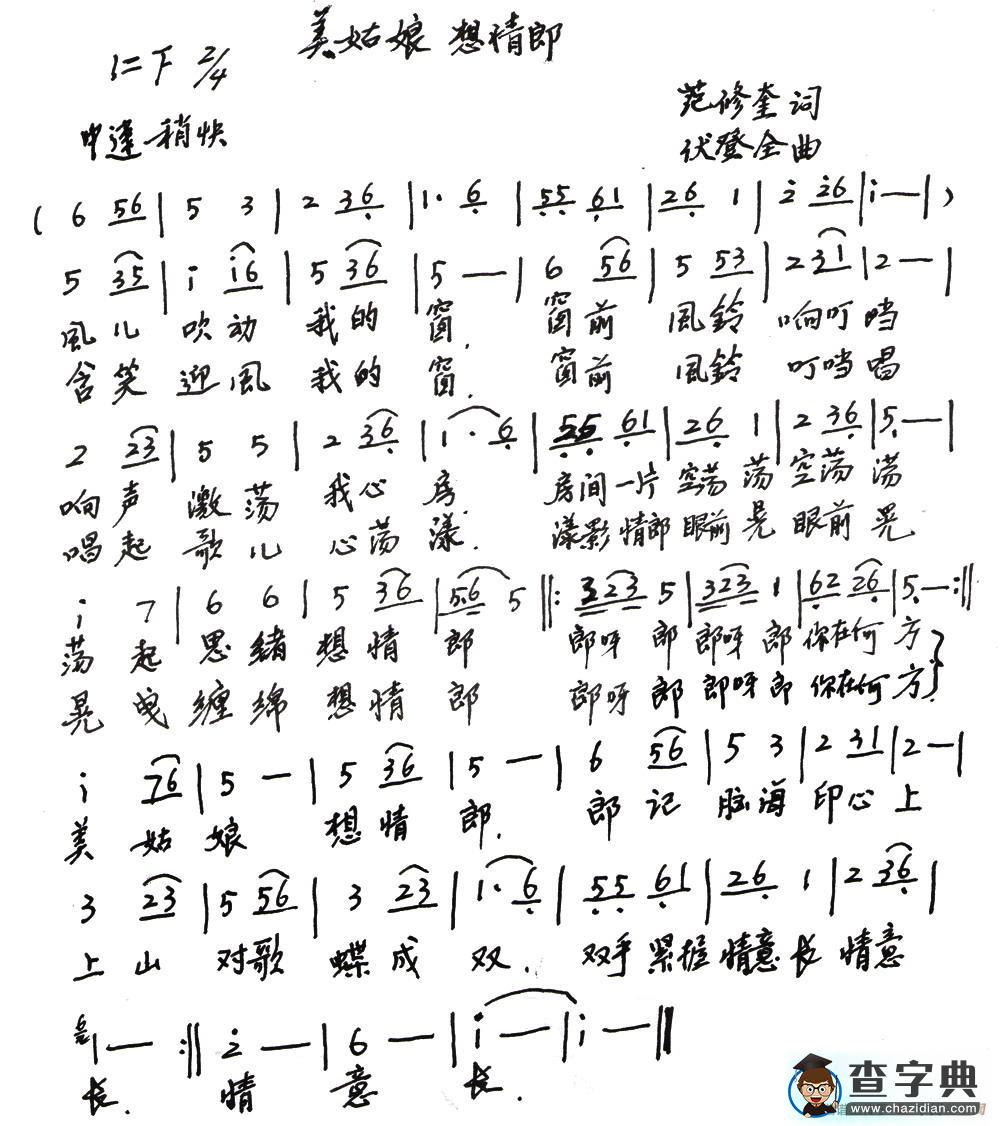 美姑娘 想情郎
1=F 2/4
范修奎 词
中速稍快
伏登全曲
( 6 56 | 5 3 | 2 36 | 1· 6 | 55 61 | 26 1 | 2 26 | i — | )
5 35 | i i6 | 5 36 | 5 — | 6 56 | 5 53 | 2 31 | 2 — |
風儿 吹动 我的 窗. 窗前 風鈴 响叮 当
含笑 迎風 我的 窗. 窗前 風鈴 叮当 唱
2 23 | 5 5 | 2 36 | 1· 6 | 55 61 | 26 1 | 2 36 | 5 — |
响声 激荡 我心 房. 房间一片 空荡 荡 空荡 荡
唱起 歌儿 心荡 漾. 漾影情郎 眼前 晃 眼前 晃
i 7 | 6 6 | 5 36 | 56 5 ‖: 323 5 | 323 1 | 62 26 | 5 — :‖
荡起 思绪 想情 郎 郎呀 郎 郎呀 郎 你在何 方
晃曳 缠绵 想情 郎 郎呀 郎 郎呀 郎 你在何 方.
i 76 | 5 — | 5 36 | 5 — | 6 56 | 5 3 | 2 31 | 2 — |
美姑 娘 想情 郎. 郎记 脑海 印心 上
3 23 | 5 56 | 3 23 | 1· 6 | 55 61 | 26 1 | 2 36 |
上山 对歌 蝶成 双. 双手 紧握 情意 长 情意
1 — :‖ 2 — | 6 — | i — | i — ‖
长. 情 意 长.
查字典
www.chazidian.com